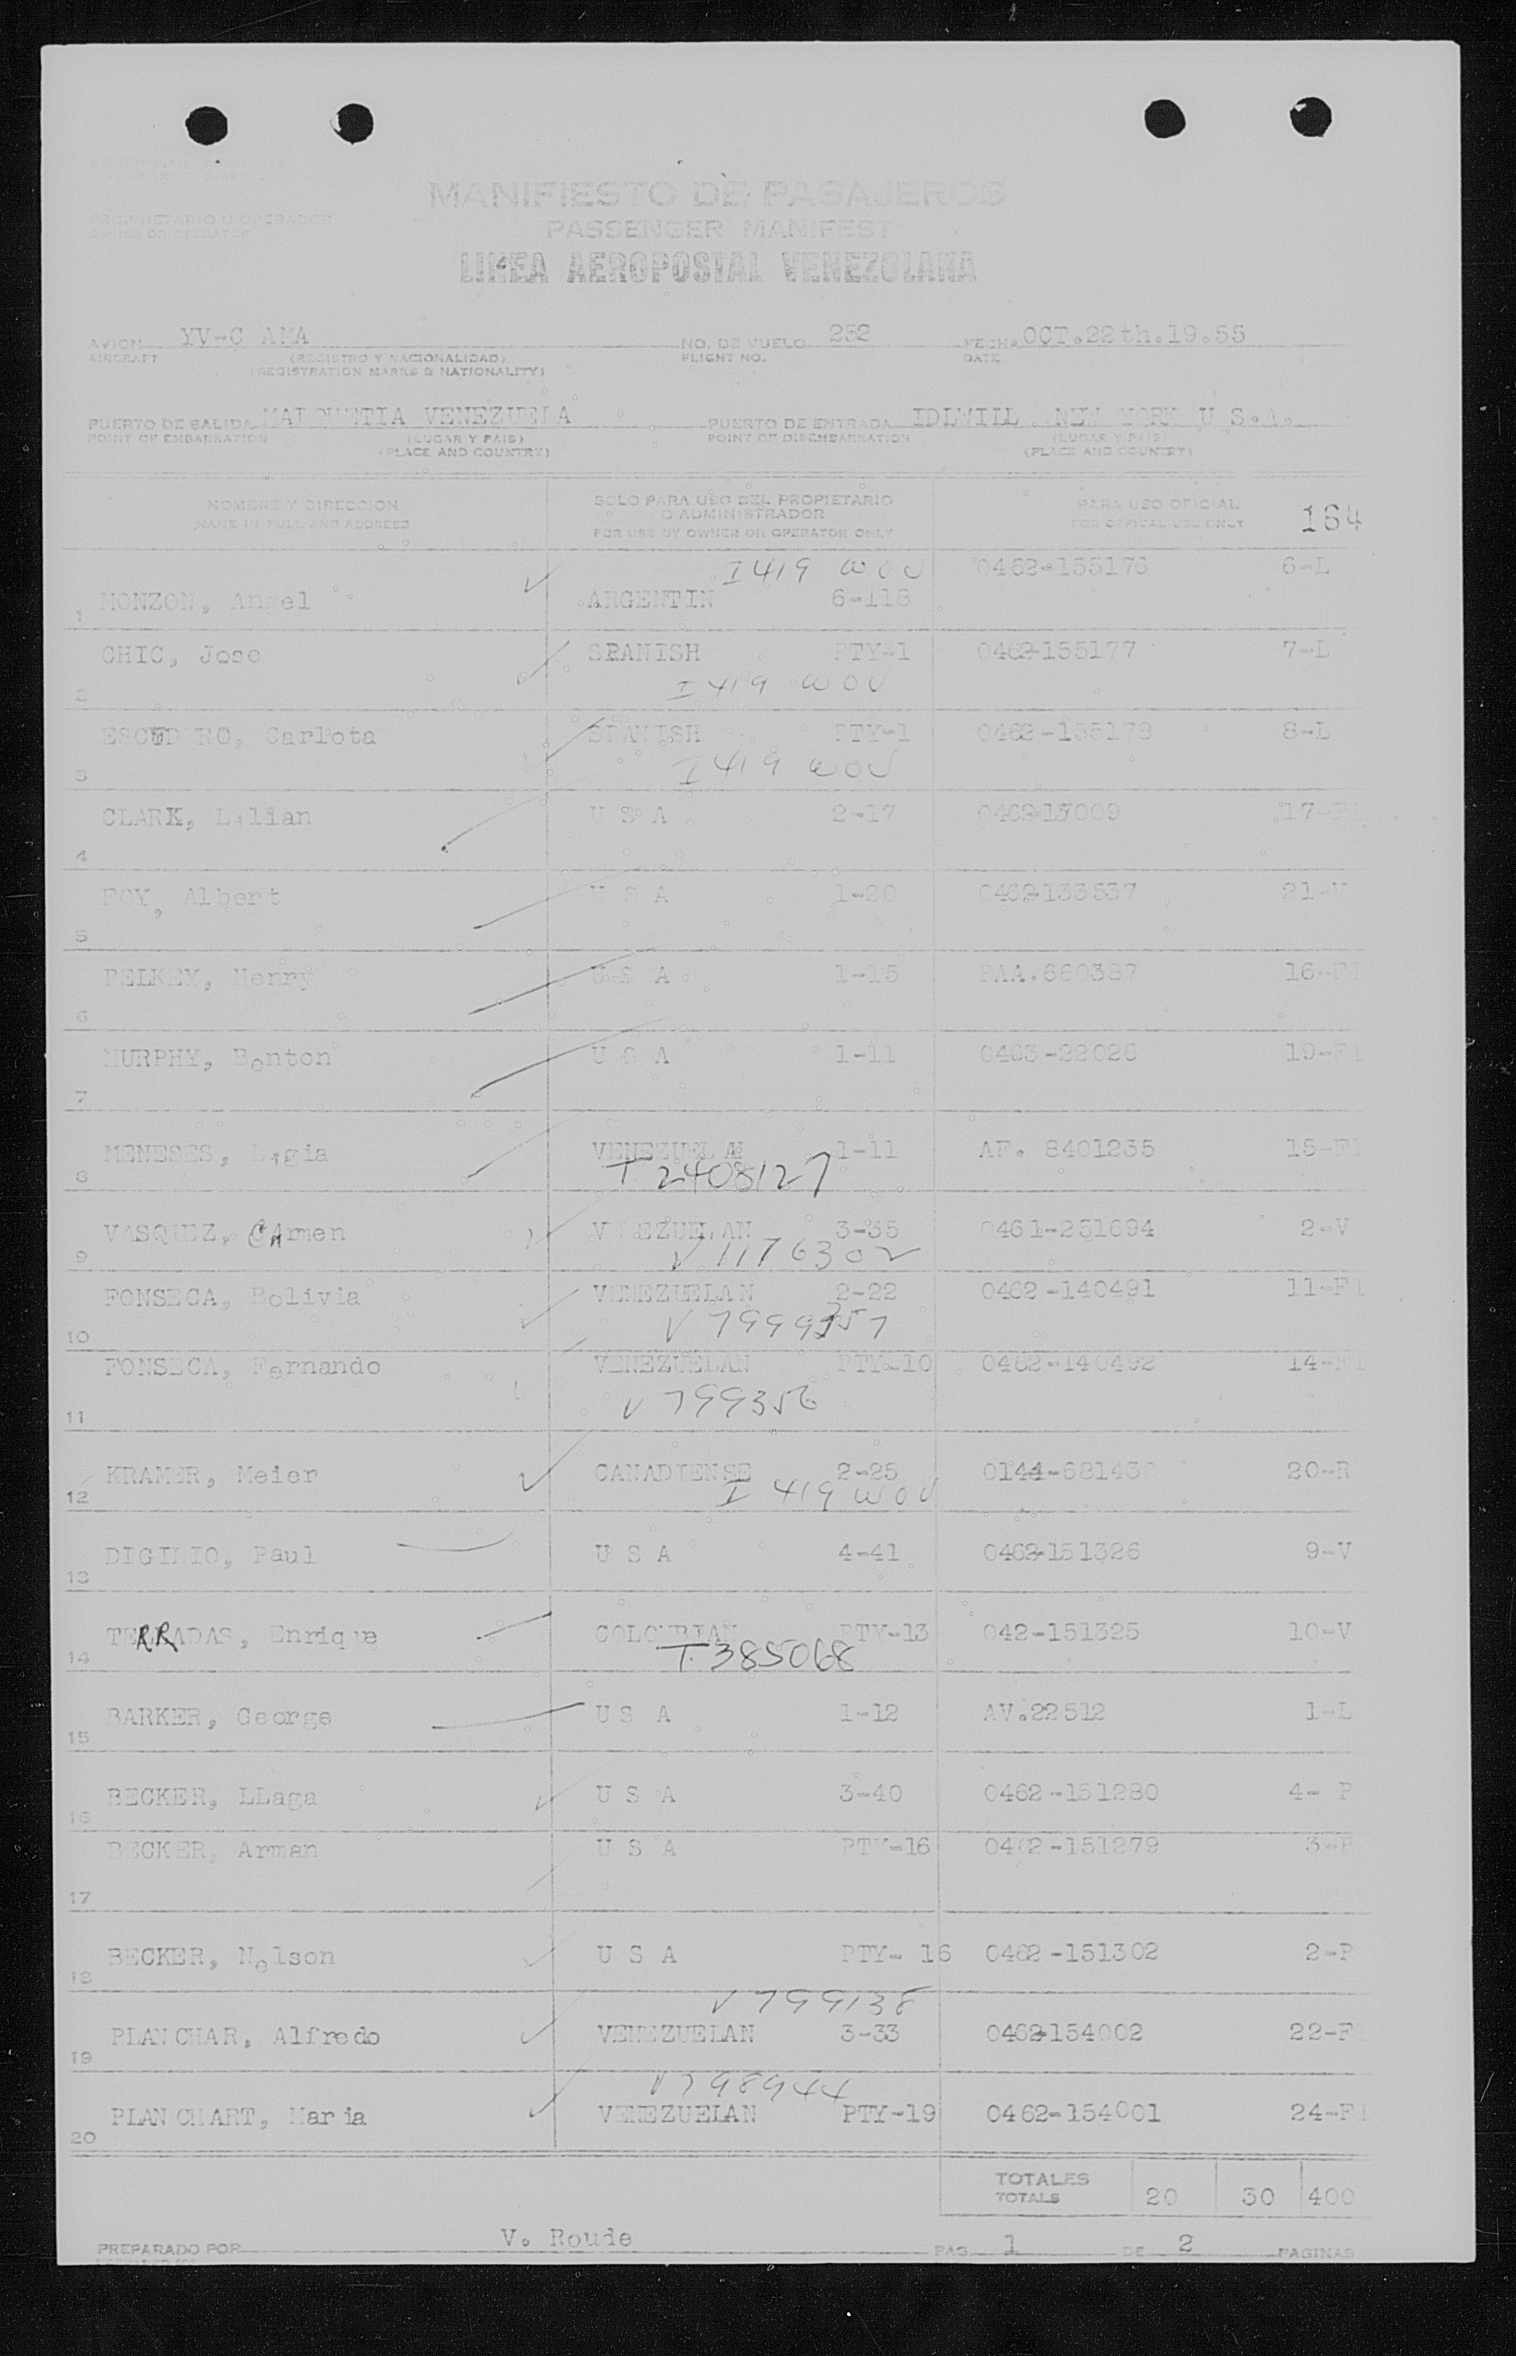 PROPRIETARIO U OPERADOR
OWNER OR OPERATOR
MANIFIESTO DE PASAJEROS
PASSENGER MANIFEST
LINEA AEROPOSTAL VENEZOLANA
AVION YV-C AMA NO. DE VUELO 252 FECHA OCT.22th.19.55
AIRCRAFT (REGISTRO Y NACIONALIDAD) FLIGHT NO. DATE
(REGISTRATION MARKS & NATIONALITY)
PUERTO DE SALIDA MAIQUETIA VENEZUELA PUERTO DE ENTRADA IDLWILL NEW YORK U S.A.
POINT OF EMBARKATION (LUGAR Y PAIS) POINT OF DISEMBARKATION (LUGAR Y PAIS)
(PLACE AND COUNTRY) (PLACE AND COUNTRY)
NOMBRE Y DIRECCION SOLO PARA USO DEL PROPIETARIO PARA USO OFICIAL
NAME IN FULL AND ADDRESS O ADMINISTRADOR FOR OFFICAL USE ONLY 164
FOR USE BY OWNER OR OPERATOR ONLY
I 419 WOV 0462-155176 6-L
1 MONZON, Angel ARGENTIN 6-118
CHIC, Jose SPANISH PTY-1 0462-155177 7-L
2 I 419 WOV
ESCUDRO, Carlota SPANISH PTY-1 0462-155178 8-L
3 I 419 WOV
CLARK, Lilian U S A 2-17 17-F1
4
FOY, Albert U S A 1-20 0462-133537 21-V
5
PELKEY, Henry U S A 1-15 PAA.660387 16-F1
6
MURPHY, Bonton U S A 1-11 0463-22026 19-F1
7
MENESES, Ligia VENEZUELAN 1-11 AF. 8401235 15-F1
8 T 2408127
VASQUEZ, CArmen VENEZUELAN 3-35 0461-251694 2-V
9 V 1176302
FONSECA, Bolivia VENEZUELAN 2-22 0462-140491 11-F1
10
FONSECA, Fernando VENEZUELAN PTY-10 0462-140492 14-F1
11 V 799356
KRAMER, Meier CANADIENSE 2-25 20-R
12 I 419 WOV
DIGINIO, Paul U S A 4-41 0462-151326 9-V
13
TERRADAS, Enrique COLOMBIAN PTY-13 042-151325 10-V
14 T 385068
BARKER, George U S A 1-12 AV.22512 1-L
15
BECKER, LLaga U S A 3-40 0462-151280 4- P
16
BECKER, Arman U S A PTY-16 0462-151279 3-P
17
BECKER, Nelson U S A PTY- 16 0462-151302 2-P
18
V 799138
PLANCHAR, Alfredo VENEZUELAN 3-33 0462-154002 22-F
19
V 798944
PLANCHART, Maria VENEZUELAN PTY-19 0462-154001 24-F1
20
TOTALES
TOTALS 20 30 400
PREPARADO POR V. Roude PAG 1 DE 2 PAGINAS